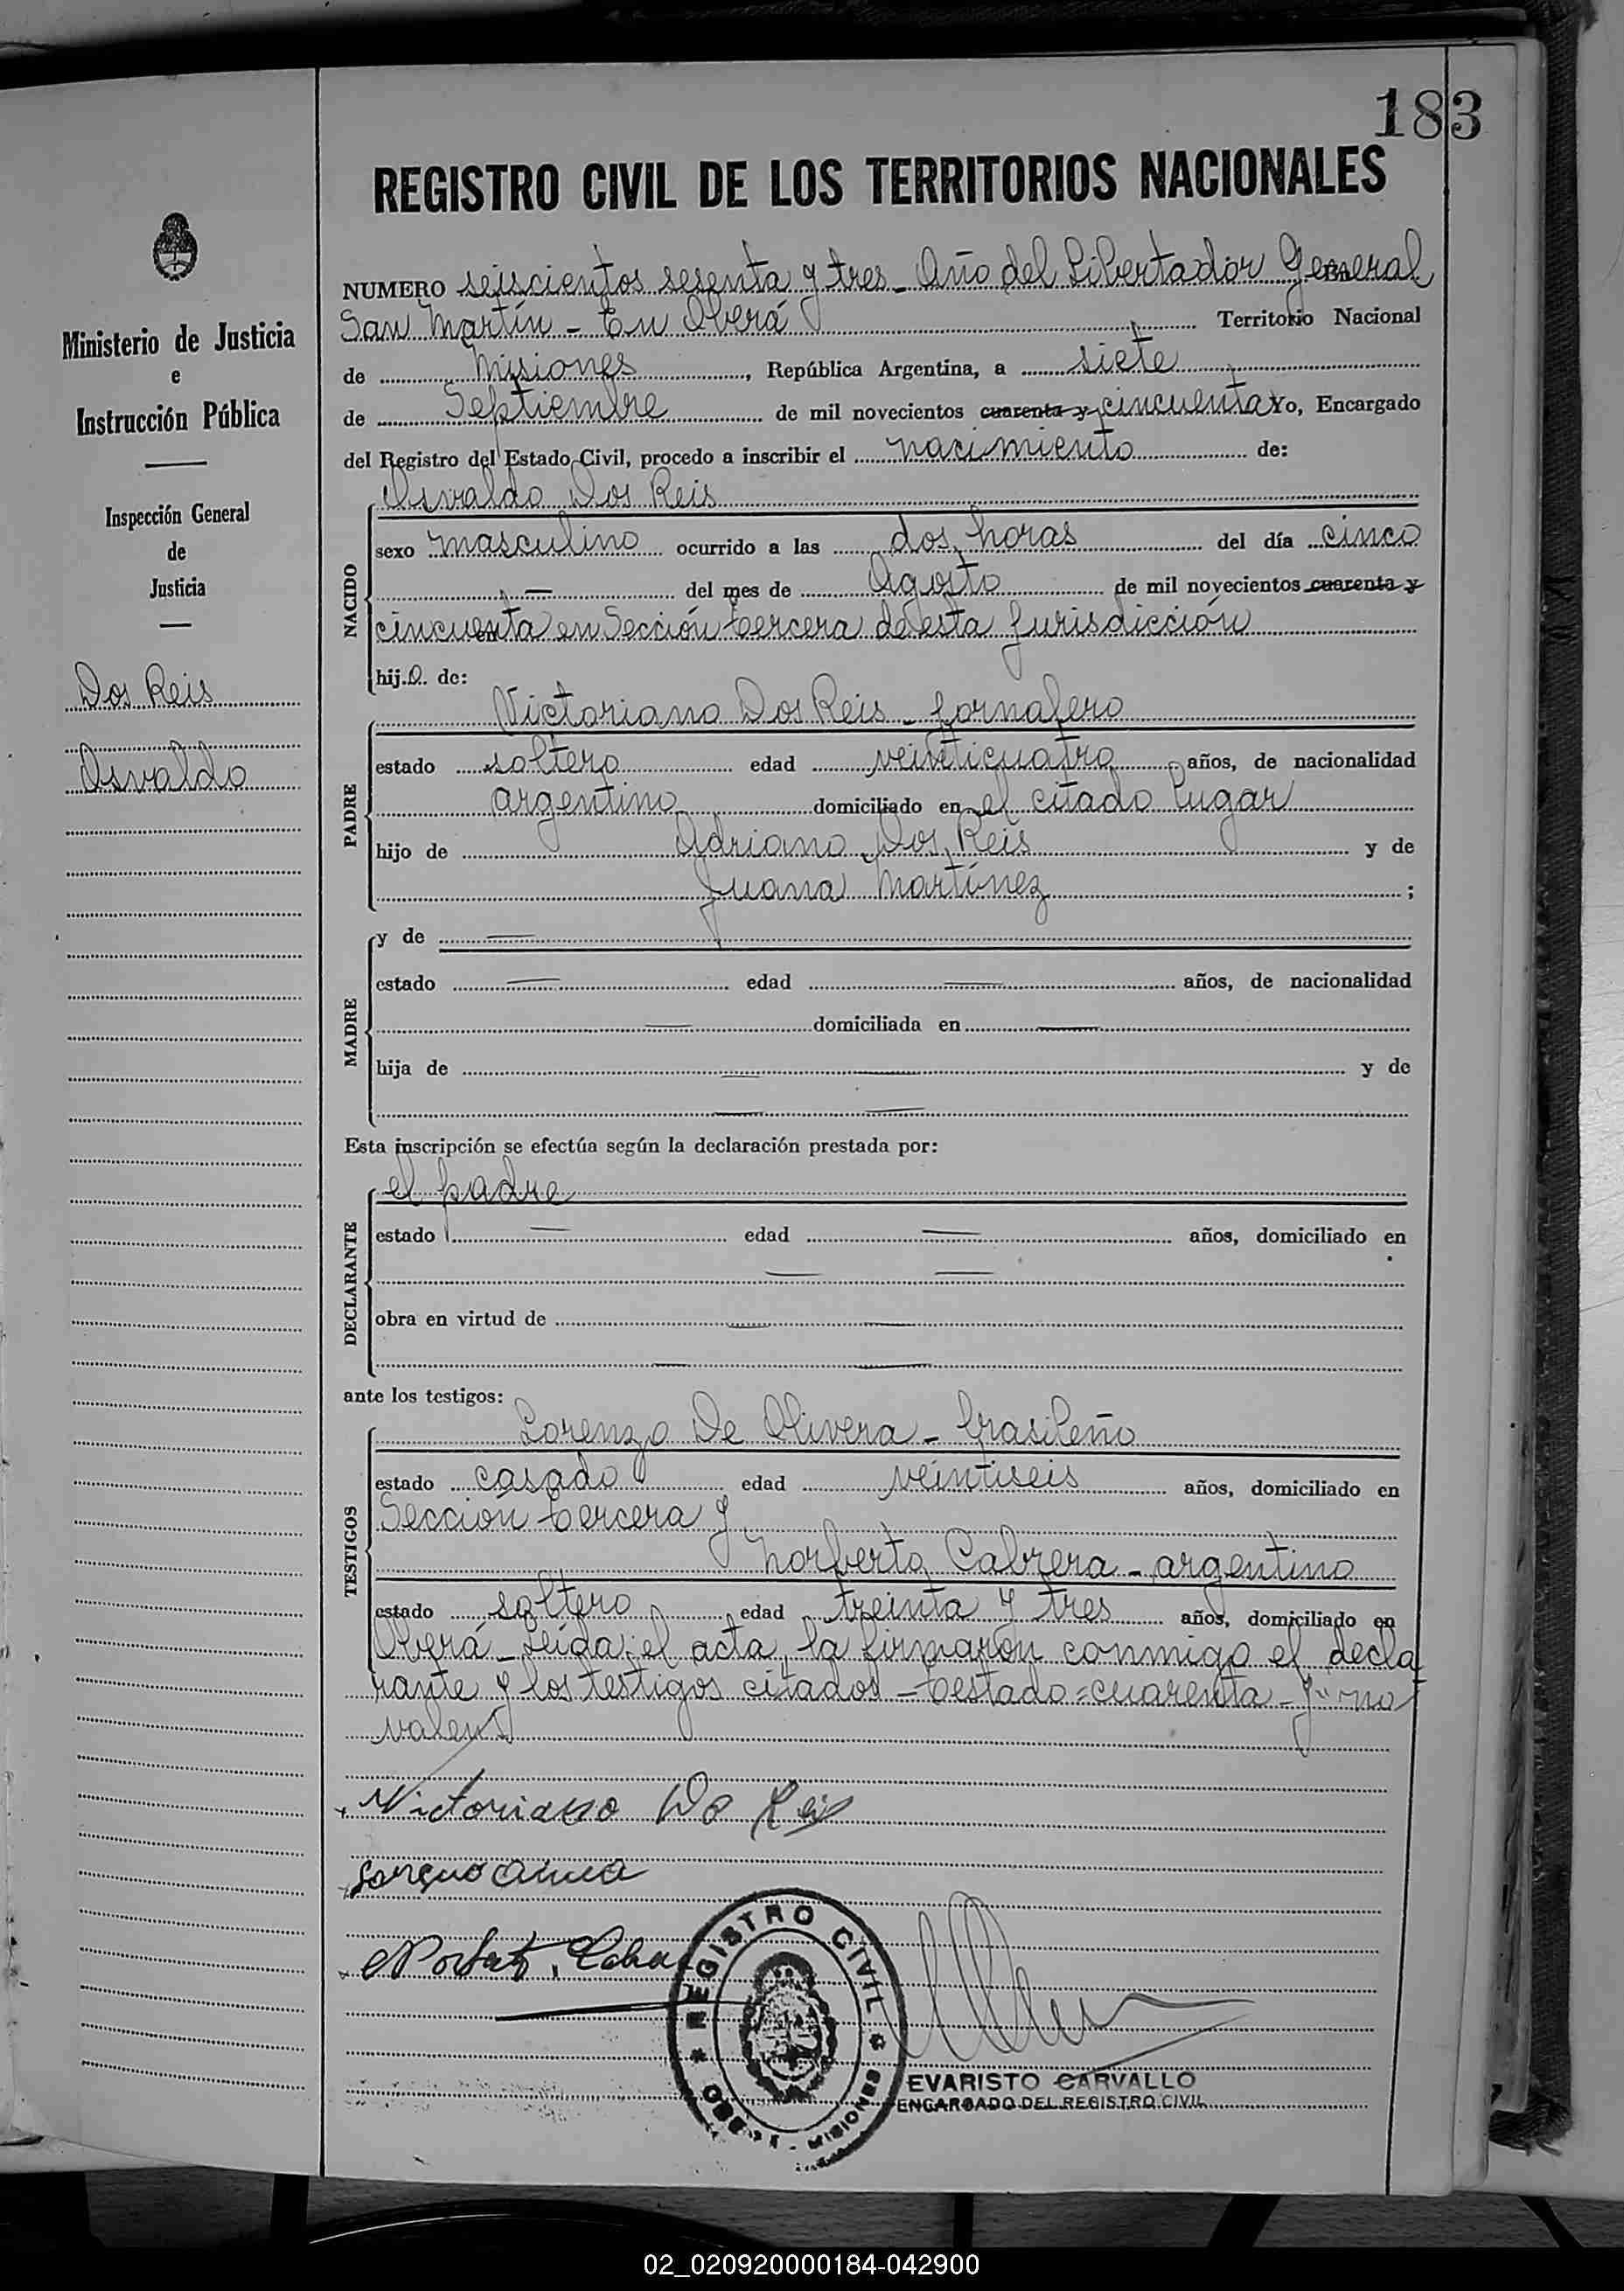 183
REGISTRO CIVIL DE LOS TERRITORIOS NACIONALES
Ministerio de Justicia
e
Instrucción Pública
Inspección General
de
Justicia
Dos Reis
Osvaldo
NUMERO seiscientos sesenta y tres - Año del Libertador General
San Martín - En Oberá Territorio Nacional
de Misiones, República Argentina, a siete
de Septiembre de mil novecientos cuarenta y cincuenta Yo, Encargado
del Registro del Estado Civil, procedo a inscribir el nacimiento de:
Osvaldo Dos Reis
NACIDO
sexo masculino ocurrido a las dos horas del día cinco
— del mes de Agosto de mil novecientos cuarenta y
cincuenta en Sección tercera de esta jurisdicción
hijo de:
Victoriano Dos Reis - jornalero
PADRE
estado soltero edad veinticuatro años, de nacionalidad
argentino domiciliado en el citado lugar
hijo de Adriano Dos Reis y de
Juana Martínez ;
MADRE
y de —
estado — edad — años, de nacionalidad
— domiciliada en —
hija de — — y de
— —
Esta inscripción se efectúa según la declaración prestada por:
el padre
DECLARANTE
estado — edad — años, domiciliado en
— —
obra en virtud de — —
— —
ante los testigos:
Lorenzo De Olivera - brasileño
TESTIGOS
estado casado edad veintiseis años, domiciliado en
Sección tercera y
Norberto Cabrera - argentino
estado soltero edad treinta y tres años, domiciliado en
Oberá - Leída el acta, la firmaron conmigo el decla
rante y los testigos citados - testado = cuarenta - y" no
valen
Victoriano Do Reis
REGISTRO CIVIL
MISIONES
EVARISTO CARVALLO
ENCARGADO DEL REGISTRO CIVIL
02_020920000184-042900